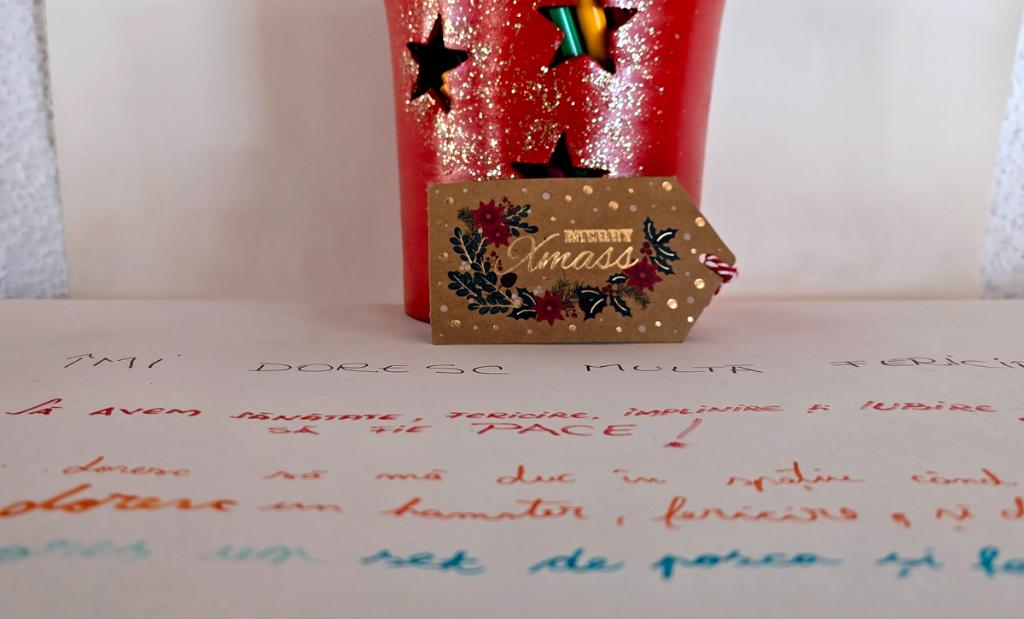 MERRY
Xmass
ÎMI DORESC MULTĂ
SĂ AVEM SĂNĂTATE, FERICIRE, ÎMPLINIRE ȘI IUBIRE,
SĂ FIE PACE!
doresc să mă duc în spațiu când
doresc un hamster, fericire, și
un set de posca și